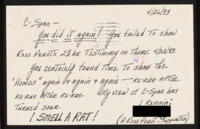 4/26/93
C-Span —
You did it again! You failed to show
Ross Perot's 2 1/2 hr Testimony on Thurs. 4/22/93.
You certainly found time to show the
"Homos" again & again & again — re-run after
re-run after re-run. My view of C-Span has
turned sour.
I SMELL A RAT!
(A Ross Perot Supporter)